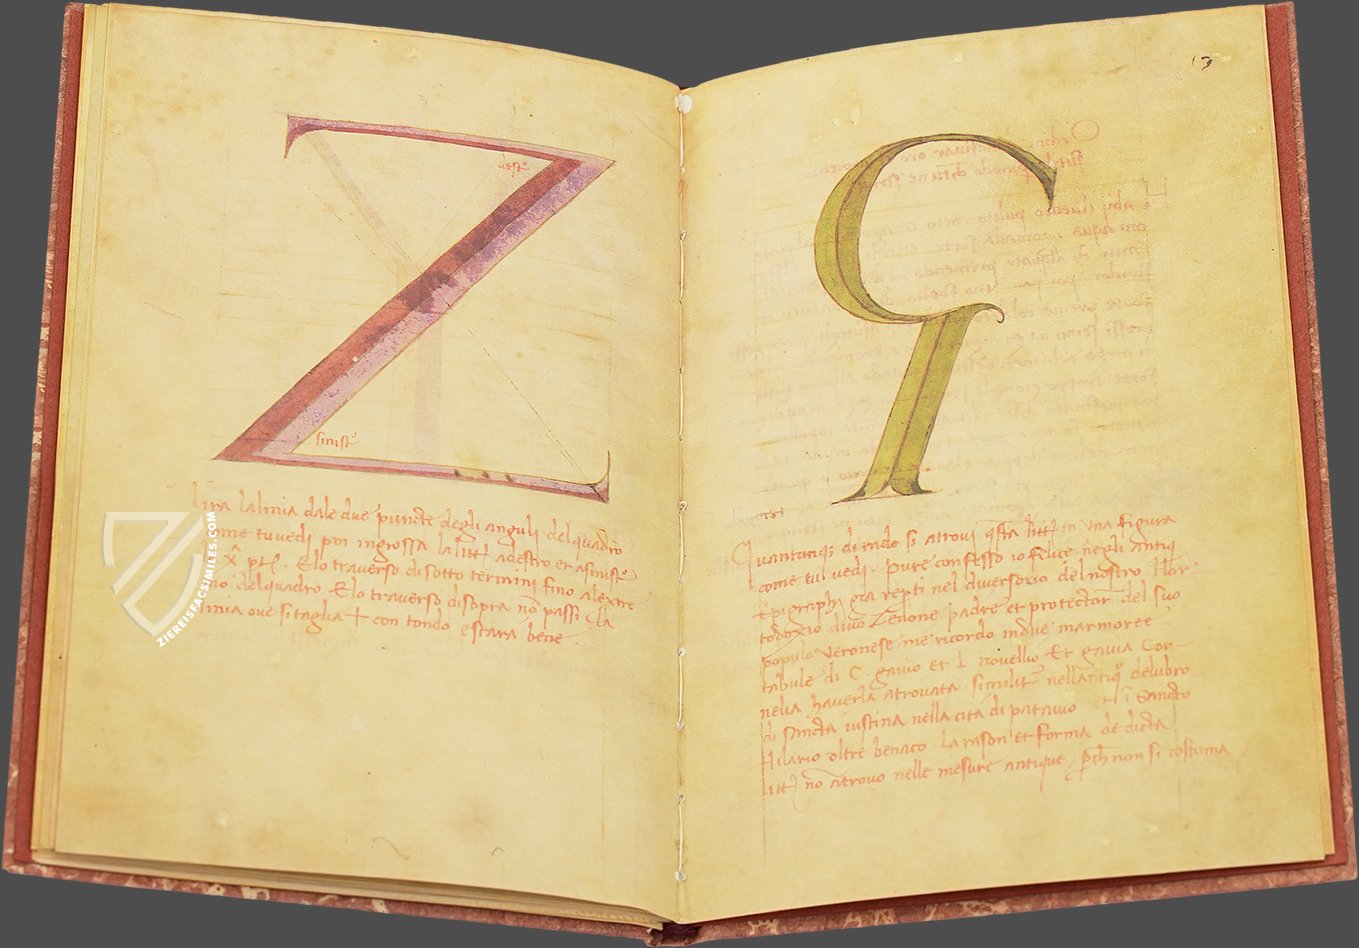 Z
destº
sinistº
Tira la linia dale due puncte degli anguli del quadro
come tu vedi poi ingrossa la littª a destro et a sinistº
la xª pte. E lo traverso di sotto termini fino al extre
mo del quadro E lo traverso di sopra nõ passi la
linia ove si taglia + con tondo e stara bene
13
Quantunq3 di rado si attrovi qsta littª in una figura
come tu vedi. pure confesso io felice negli antiqi
Epigraphi gia repti nel diversorio del nostro
divo Zenone padre et protector del suo
populo veronese me ricordo in due marmoree
tabule di C. gavio et L novellio Et gavia Cor-
nelia haverla atrovata similitª nell antiqº delubro
di sancta iustina nella cita di patavio et ĩ Sancto
Hilario oltre benaco. la rason et forma de dicta
littª nõ atrovo nelle mesure antique, pch non si costuma
ZIEREISFACSIMILES.COM